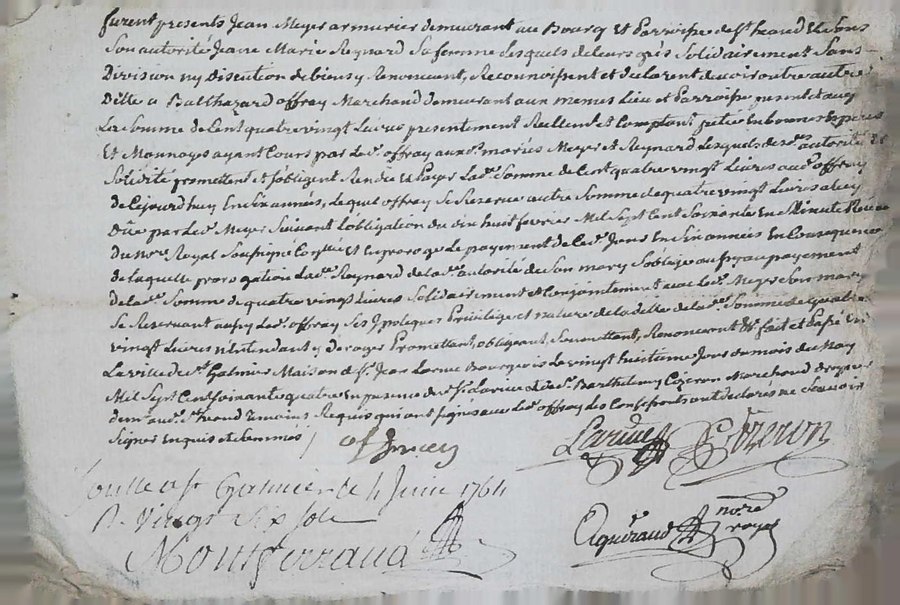 furent presents Jean Meyer armurier demeurant au Bourg et Parroisse de St heand et sous
Son autorité Jeane Marie Reynard Sa femme lesquels de leurs grés Solidairement Sans
Division ny Discution de biens y Renoncant, Reconnoissent et declarent devoir outre autre
Dette a Balthazard offray Marchand demeurant aux memes Lieu et Parroisse present et
La Somme de Cent quatre vingt Livres presentement Reellemt et Comptant en bonnes Especes
Et Monnoyes ayant Cours par led. offray auxd. mariés Meyer et Reynard Lesquels desd. autorité et
Solidité promettent et sobligent Rendre et Payer Lad. Somme de Cent quatre vingt Livres aud. offray
de Cejourdhuy En Six années, Lequel offray Se Reserve autre Somme de quatre vingt Livres a luy
Düe par Led. Meyer Suivant Lobligation du dix huit fevrier Mil Sept Cent Soixante En Minute
du nore. Royal Soussigné et proroge Le payement de Ced. Jour En Six années En Consequence
de laquelle prorogation Lad. Reynard de lad. autorité de Son mary Soblige aussy au payement
de lad. Somme de quatre vingt Livres Solidairement et Conjointement avec Led. Meyer Son mary
Se Reservant aussy Led. offray Ses Ipoteques Privilege et nature de la dette de lad. Somme de quatre
vingt Livres Nentendant y deroger Promettant, obligeant, Soumettant, Renoncent &c fait et Passé En
La ville de St Galmier Maison de Sr. Jean Larive Bourgeois Le vingt huitieme Jour du mois de May
Mil Sept Cent Soixante quatre En presence dud. Sr. Larive et de Sr. Barthelemy Cozeron Marchand
demt. aud. St heand Temoins Requis qui ont signés avec Led. offray Les Confessants ont declarés ne Scavoir
Signer Enquis et Sommés
offray
Larive Cozeron
Controllé a St Galmier le 4 Juin 1764
R. Vingt Six Sols
Aquiraud nore. royal
Montferraud